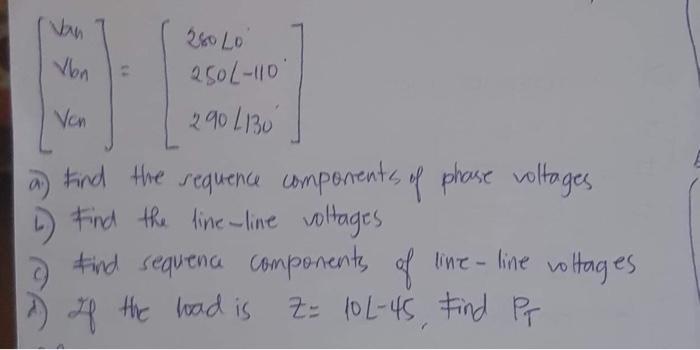 [Van Vbn Vcn] = [280∠0° 250∠-110° 290∠130°]
a) Find the sequence components of phase voltages
b) Find the line-line voltages
c) Find sequence components of line-line voltages
d) If the load is Z= 10∠-45, Find PT